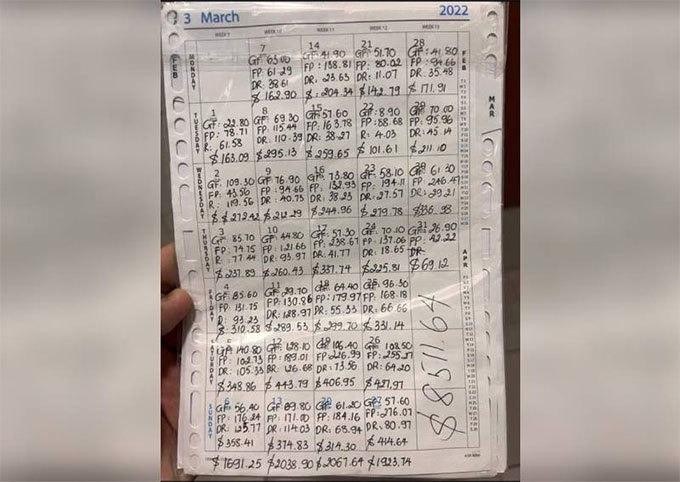 3 March
2022
WEEK 9
WEEK 10
WEEK 11
WEEK 12
WEEK 13
FEB
MONDAY
7
GF: 63.00
FP: 61.29
DR: 38.61
$ 162.90
14
GF: 41.90
FP: 138.81
DR: 23.63
$ 204.34
21
GF: 51.70
FP: 80.02
DR: 11.07
$ 142.79
28
GF: 41.80
FP: 94.66
DR: 35.48
$ 171.91
FEB
MAR
TUESDAY
1
GF: 22.80
FP: 78.71
R: 61.58
$ 163.09
8
GF: 69.30
FP: 115.44
DR: 110.39
$ 295.13
15
GF: 57.60
FP: 163.78
DR: 38.27
$ 259.65
22
GF: 8.90
FP: 88.68
R: 4.03
$ 101.61
29
GF: 70.00
FP: 95.96
DR: 45.14
$ 211.10
WEDNESDAY
2
GF: 109.30
FP: 43.56
R: 119.56
$ 272.42
9
GF: 76.90
FP: 94.66
DR: 40.73
$ 212.29
16
GF: 73.80
FP: 132.93
DR: 38.23
$ 244.96
23
GF: 58.10
FP: 194.11
DR: 27.57
$ 279.78
30
GF: 61.30
FP: 246.47
DR: 29.21
$ 336.98
THURSDAY
3
GF: 85.70
FP: 74.75
R: 77.44
$ 237.89
10
GF: 44.80
FP: 121.66
DR: 93.97
$ 260.43
17
GF: 57.30
FP: 238.67
DR: 41.77
$ 337.74
24
GF: 70.10
FP: 137.06
DR: 18.65
$ 225.81
31
GF: 26.90
FP: 42.22
DR:
$ 69.12
APR
FRIDAY
4
GF: 85.60
FP: 131.75
R: 93.23
$ 310.58
11
GF: 29.70
FP: 130.86
DR: 128.97
$ 289.53
18
GF: 64.40
FP: 179.97
DR: 55.33
$ 299.70
25
GF: 96.30
FP: 168.18
DR: 66.66
$ 331.14
SATURDAY
5
GF: 140.80
FP: 102.73
DR: 105.33
$ 348.86
12
GF: 128.10
FP: 189.01
DR: 126.68
$ 443.79
19
GF: 106.40
FP: 226.99
DR: 73.56
$ 406.95
26
GF: 108.50
FP: 255.27
DR: 64.20
$ 427.97
SUNDAY
6
GF: 56.40
FP: 176.24
DR: 125.77
$ 358.41
13
GF: 89.80
FP: 171.00
DR: 114.03
$ 374.83
20
GF: 61.20
FP: 184.16
DR: 68.94
$ 314.30
27
GF: 57.60
FP: 276.07
DR: 80.97
$ 414.64
$8511.64
$1691.25 $2038.90 $2067.64 $1923.74